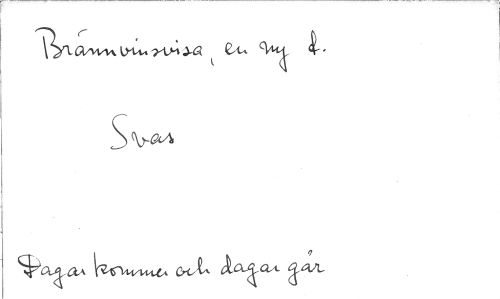 Brännvinsvisa, en ny d.
Svas
Dagar kommer och dagar går